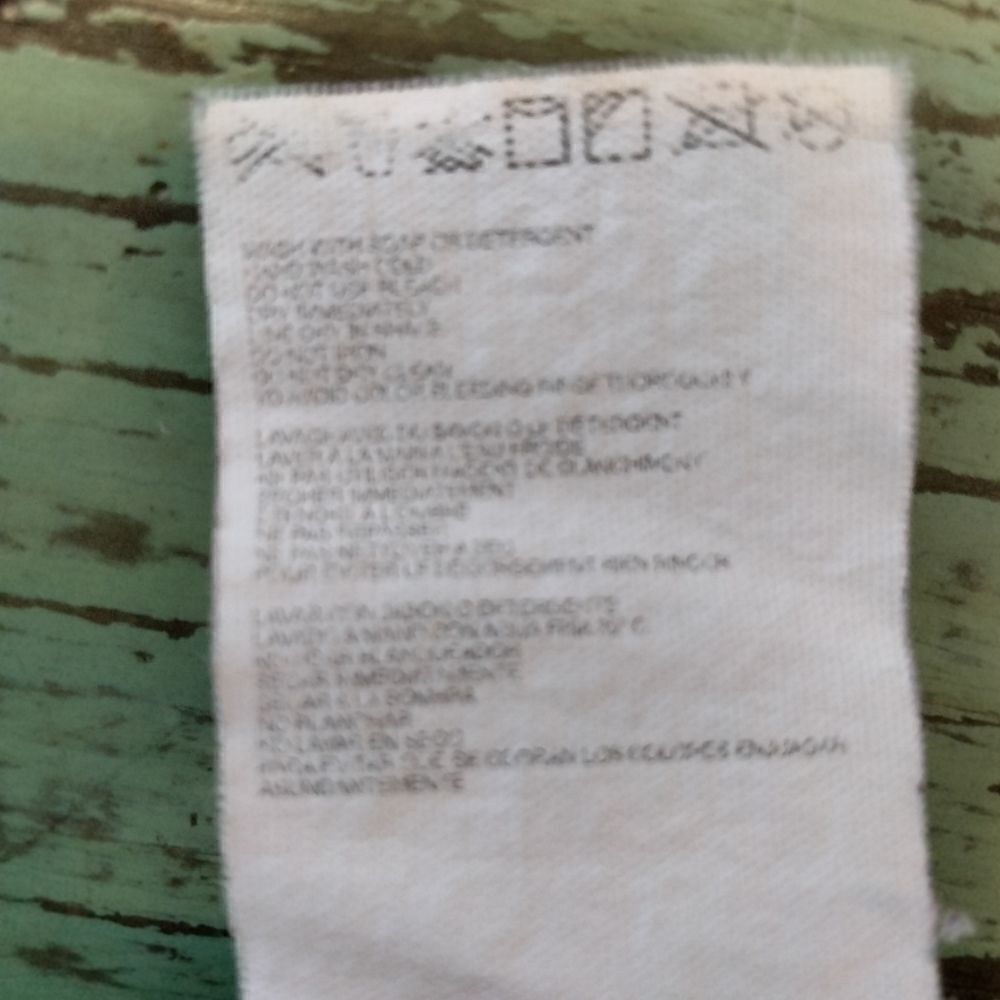 WASH WITH SOAP OR DETERGENT
HAND WASH COLD
DO NOT USE BLEACH
DRY IMMEDIATELY
LINE DRY IN SHADE
DO NOT IRON
DO NOT DRY CLEAN
TO AVOID COLOR BLEEDING RINSE THOROUGHLY
LAVAGE AVEC DU SAVON OU LE
LAVER A LA MAIN A L'EAU FROIDE
NE PAS UTILISER D'AGENT DE BLANCHIMENT
SECHER IMMEDIATEMENT
A L'OMBRE
NE PAS REPASSER
NE PAS NETTOYER A SEC
POUR EVITER LE BIEN RINCER
LAVAR CON JABON O DETERGENTE
LAVAR A MANO CON AGUA FRIA
NO USAR BLANQUEADOR
SECAR INMEDIATAMENTE
SECAR A LA SOMBRA
NO PLANCHAR
NO LAVAR EN SECO
PARA EVITAR QUE SE LOS